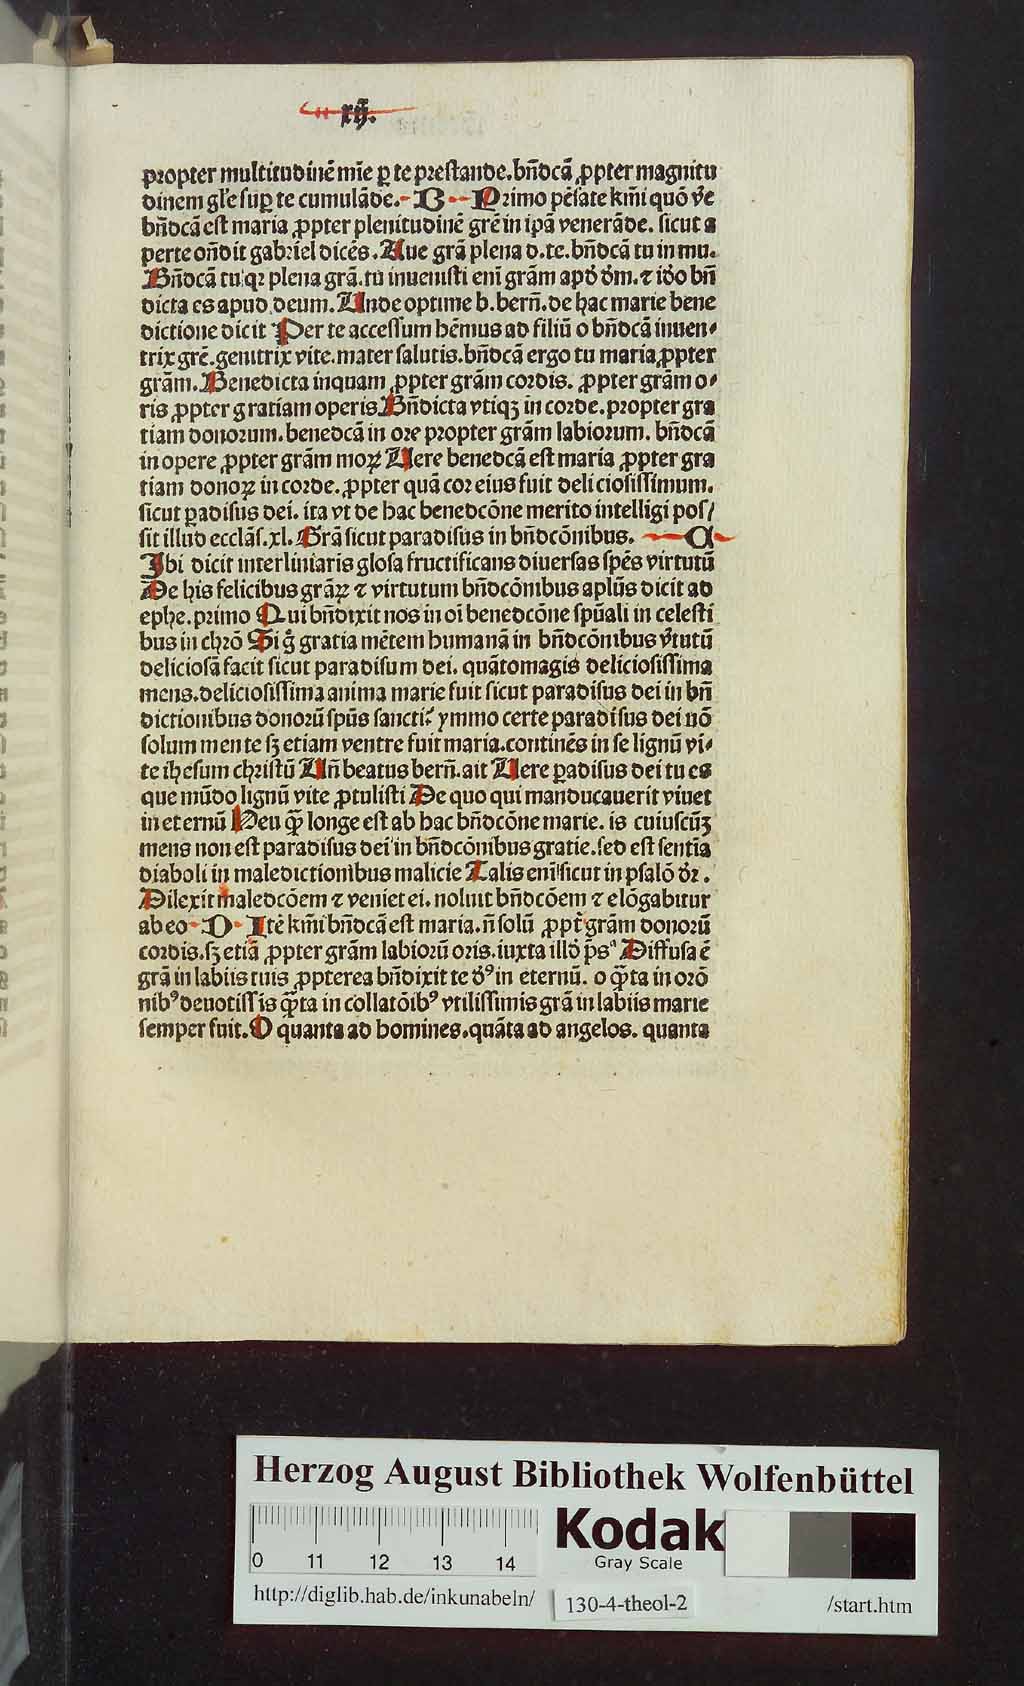 xij.
propter multitudinē mīe ꝑ te prestande. bn̄dcā ꝓpter magnitu
dinem gl'e suꝑ te cumulāde. B Primo pēsate km̄i quō v̄e
bn̄dcā est maria ꝓpter plenitudinē grē in ip̄a venerāde. sicut a
perte on̄dit gabriel dicēs. Aue grā plena d. te. bn̄dcā tu in mu.
Bn̄dcā tu qꝛ plena grā. tu inuenisti eni grām apd' dm̄. ⁊ iďo bn̄
dicta es apud deum. Unde optime b. bern̄. de hac marie bene
dictione dicit Per te accessum hēmus ad filiū o bn̄dcā inuen-
trix grē. genitrix vite. mater salutis. bn̄dcā ergo tu maria ꝓpter
grām. Benedicta inquam ꝓpter grām cordis. ꝓpter grām o-
ris ꝓpter gratiam operis Bn̄dicta vtiqꝫ in corde. propter gra
tiam donorum. benedcā in ore propter grām labiorum. bn̄dcā
in opere ꝓpter grām moꝝ Uere benedcā est maria ꝓpter gra
tiam donoꝝ in corde. ꝓpter quā cor eius fuit deliciosissimum.
sicut ꝑadisus dei. ita vt de hac benedcōne merito intelligi pos/
sit illud ecclās. xl. Grā sicut paradisus in bn̄dcōnibus. C
Ibi dicit interliniaris glosa fructificans diuersas spēs virtutū
De his felicibus grāꝝ ⁊ virtutum bn̄dcōnibus aplūs dicit ad
ephe. primo Qui bn̄dixit nos in oī benedcōne spūali in celesti
bus in chrō Si g̊ gratia mētem humanā in bn̄dcōnibus v̓tutū
deliciosā facit sicut paradisum dei. quātomagis deliciosissima
mens. deliciosissima anima marie fuit sicut paradisus dei in bn̄
dictionibus donorū spūs sancti? ymmo certe paradisus dei nō
solum mente sꝫ etiam ventre fuit maria. continēs in se lignū vi-
te ihesum christū Un̄ beatus bern̄. ait Uere ꝑadisus dei tu es
que mūdo lignū vite ꝓtulisti De quo qui manducauerit viuet
in eternū Heu q̄ꝫ longe est ab hac bn̄dcōne marie. is cuiuscūꝫ
mens non est paradisus dei in bn̄dcōnibus gratie. sed est sentīa
diaboli in maledictionibus malicie Talis eni sicut in psalō dꝛ.
Dilexit maledcōem ⁊ veniet ei. noluit bn̄dcōem ⁊ elōgabitur
ab eo D Itē km̄i bn̄dcā est maria. n̄ solū ꝓpt̓ grām donorū
cordis. sꝫ etiā ꝓpter grām labiorū oris. iuxta illď p̄sª Diffusa ē
grā in labiis tuis ꝓpterea bn̄dixit te d̓ꝰ in eternū. o q̄ta in orō
nibꝰ deuotissis q̄ta in collatōibꝰ vtilissimis grā in labiis marie
semper fuit. O quanta ad homines. quāta ad angelos. quanta
Herzog August Bibliothek Wolfenbüttel
0 11 12 13 14
Kodak
Gray Scale
http://diglib.hab.de/inkunabeln/ 130-4-theol-2 /start.htm